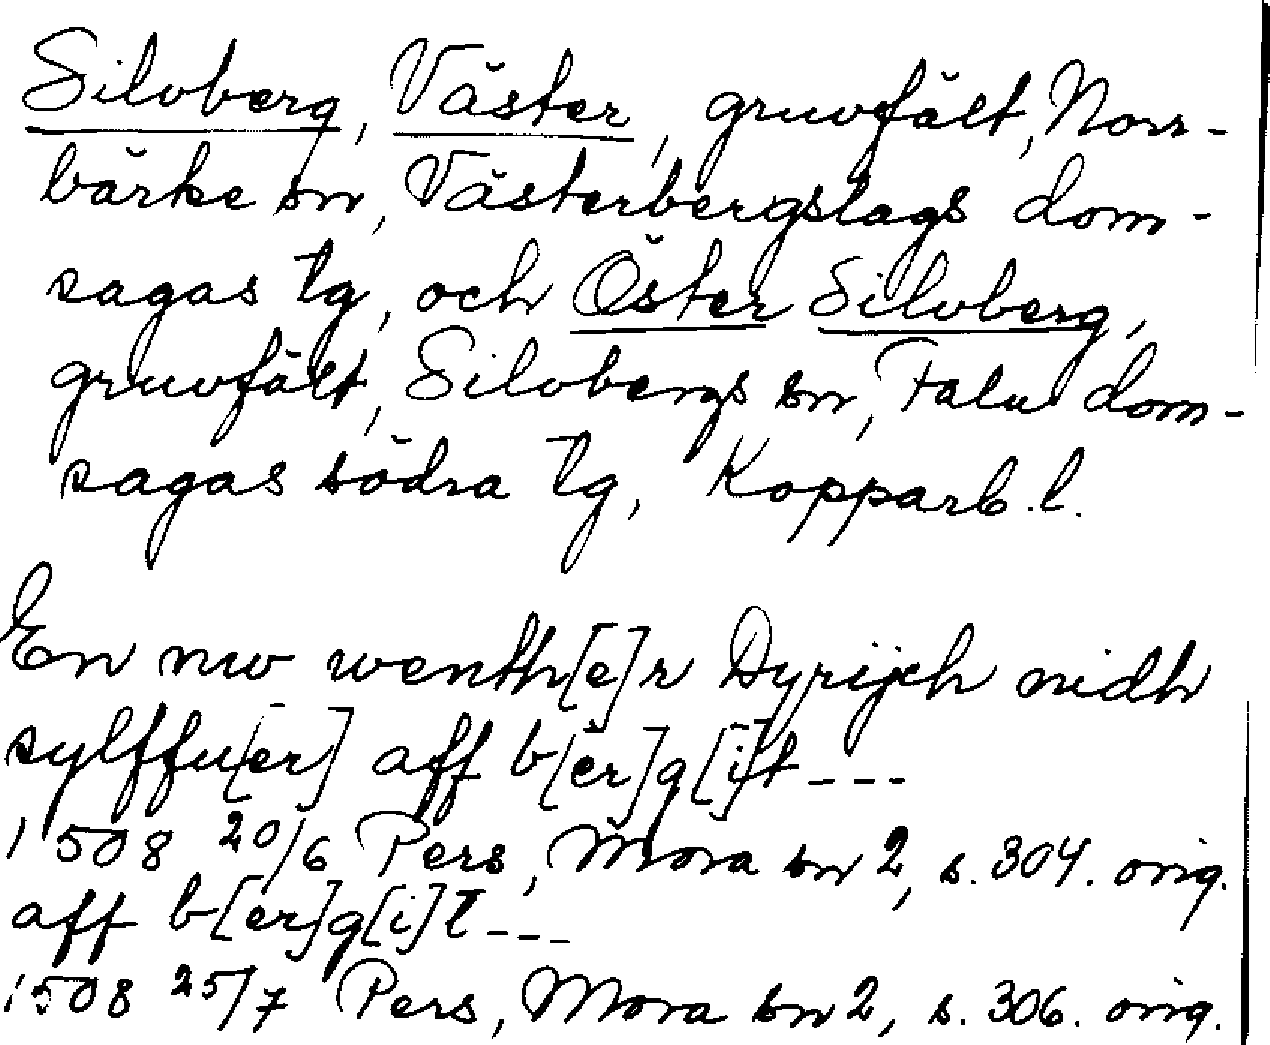 Silvberg, Väster, gruvfält, Norr-
bärke sn, Västerbergslags dom-
sagas tg, och Öster Silvberg,
gruvfält, Silvbergs sn, Falu dom-
sagas södra tg, Kopparb. l.
En nw wenth[e]r Dyrijch nidh
sylffu[er] aff b[er]g[i]t ---
1508 20/6 Pers, Mora sn 2, s. 304. orig.
aff b[er]g[i]t ---
1508 25/7 Pers, Mora sn 2, s. 306. orig.